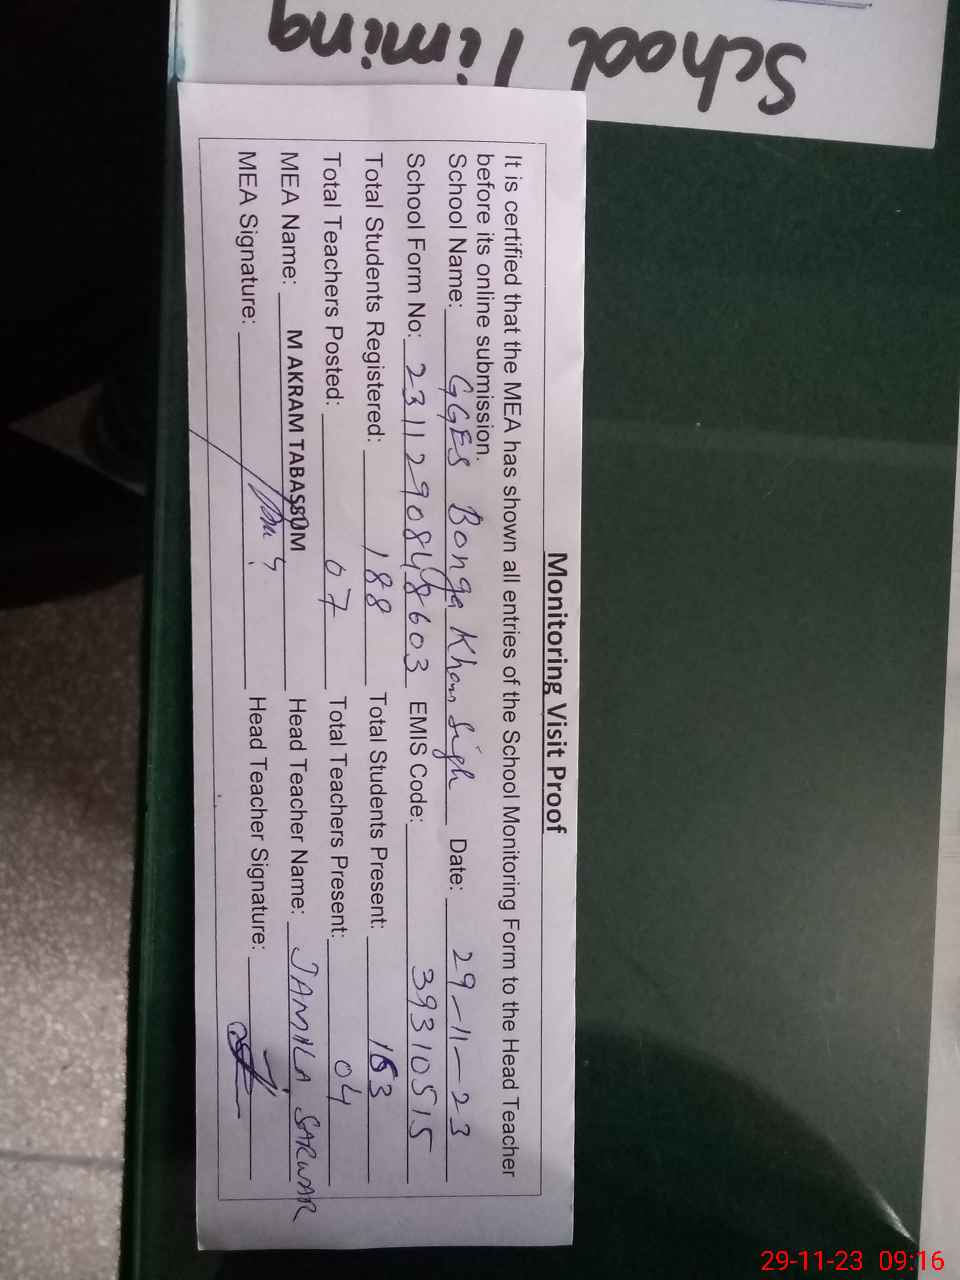 School Timing
Monitoring Visit Proof
It is certified that the MEA has shown all entries of the School Monitoring Form to the Head Teacher
before its online submission.
School Name: GGES Bonga Kham Sigh Date: 29-11-23
School Form No: 23112908448603 EMIS Code: 39310515
Total Students Registered: 188 Total Students Present: 163
Total Teachers Posted: 07 Total Teachers Present: 04
MEA Name: M AKRAM TABASSUM Head Teacher Name: JAMILA SARWAR
MEA Signature: Head Teacher Signature:
29-11-23 09:16